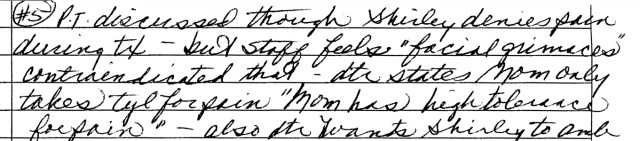 #5 P.T. discussed though Shirley denies pain
during tx - but staff feels "facial grimaces"
contraindicated that - dtr states Mom only
takes tyl for pain "Mom has high tolerance
for pain" - also dtr wants Shirley to amb